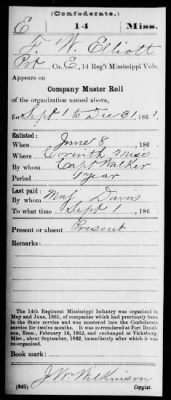 (Confederate.)
E 14 Miss.
F. W. Elliott
Pvt, Co. E, 14 Reg't Mississippi Vols.
Appears on
Company Muster Roll
of the organization named above,
for Sept 1 to Dec 31, 1861.
Enlisted:
When June 8, 186
Where Corinth Miss
By whom Capt Walker
Period 1 year
Last paid:
By whom Maj Davis
To what time Sept 1, 186
Present or absent Present
Remarks:
The 14th Regiment Mississippi Infantry was organized in
May and June, 1861, of companies which had previously been
in the State service and was mustered into the Confederate
service for twelve months. It was surrendered at Fort Donel-
son, Tenn., February 16, 1862, and exchanged at Vicksburg,
Miss., about September, 1862, immediately after which it was
reorganized.
Book mark:
J. W. Wilkinson
(642) Copyist.